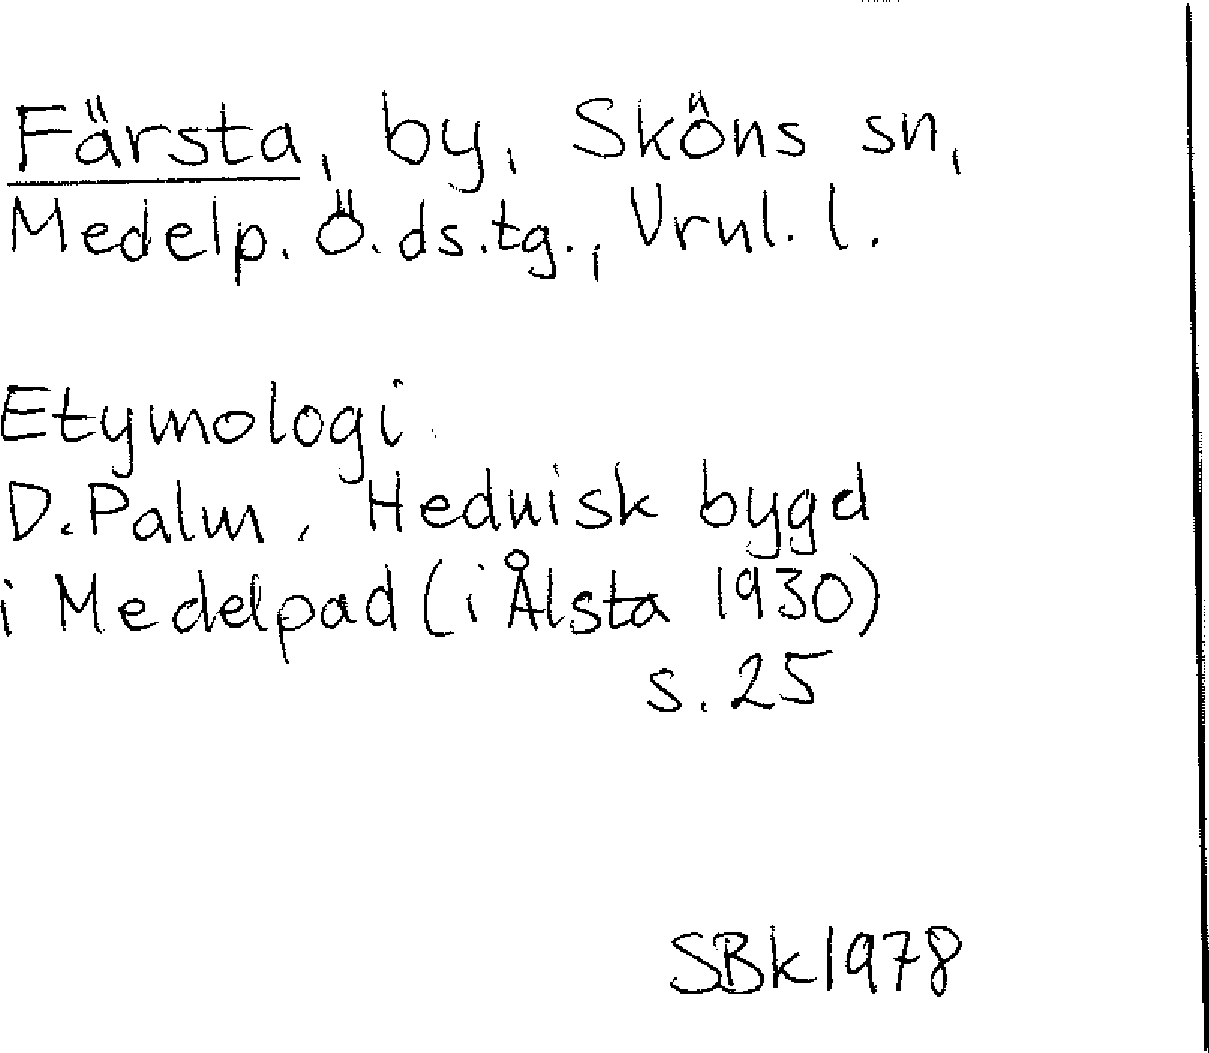 Färsta, by, Sköns sn,
Medelp. Ö. ds. tg., Vrnl. l.
Etymologi
D. Palm, Hednisk bygd
i Medelpad (i Ålsta 1930)
s. 25
SBk 1978